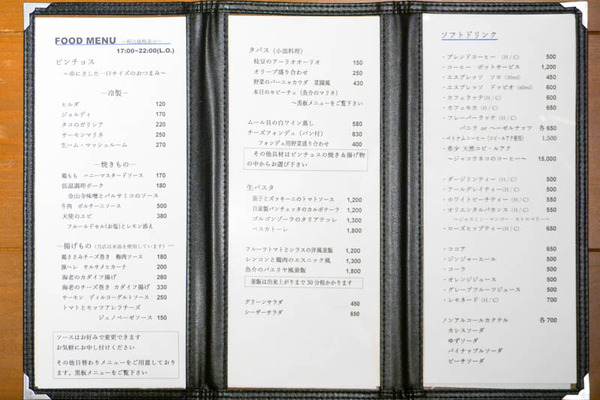 FOOD MENU －税込価格表示－
17:00~22:00(L.O.)
ピンチョス
～串にさした一口サイズのおつまみ～
―冷製―
ヒルダ 120
ジョルディ 170
タコのガリシア 220
サーモンマリネ 250
生ハム・マッシュルーム 270
―焼きもの―
鶏もも ハニーマスタードソース 170
低温調理ポーク 180
金山寺味噌とバルサミコのソース
牛肉 ボルチーニソース 500
天使のエビ 380
フルールドセル(お塩)とレモン添え
―揚げもの (当店は米油を使用しています)―
鶏ささみチーズ巻き 梅肉ソース 180
豚ヘレ サルサメヒカーナ 200
海老のカダイフ揚げ 280
海老のチーズ巻き カダイフ揚げ 330
サーモン ディルヨーグルトソース 250
トマトとモッツアレラチーズ
ジェノベーゼソース 150
ソースはお好みで変更できます
お気軽にお申し付けください
その他日替わりメニューをご用意しており
ます。黒板メニューをご覧下さい。
タパス (小皿料理)
枝豆のアーリオオーリオ 150
オリーブ盛り合わせ 250
野菜のバーニャカウダ 菜園風 430
本日のセビーチェ (魚介のマリネ)
～黒板メニューをご覧下さい
ムール貝の白ワイン蒸し 580
チーズフォンデュ (パン付) 830
フォンデュ用野菜盛り合わせ 400
その他具材はピンチョスの焼き&揚げ物
の中からお選び下さい
生パスタ
茄子とズッキーニのトマトソース 1,200
自家製パンチェッタのカルボナーラ 1,200
ゴルゴンゾーラのタリアテッレ 1,300
ペスカトーレ 1,800
フルーツトマトとシラスの洋風釜飯 1,300
レンコンと鶏肉のエスニック風 1,300
魚介のパエリヤ風釜飯 1,800
釜飯は出来上がりまで30分程かかります
グリーンサラダ 450
シーザーサラダ 650
ソフトドリンク
・ブレンドコーヒー (H/C) 500
・コーヒー ポットサービス 1,200
・エスプレッソ ソロ (30ml) 450
・エスプレッソ ドッピオ (60ml) 600
・カフェラッテ(H/C) 600
・カフェモカ (H/C) 650
・フレーバーラッテ (H/C)
バニラ or ヘーゼルナッツ 各650
・ベトナムコーヒー(コピ・ルアク使用) 1,500
・希少 天然コピ・ルアク
～ジャコウネコのコーヒー～ 15,000
・ダージリンティー (H/C) 500
・アールグレイティー (H/C) 500
・ホワイトピーチティー (H/C) 550
・オリエンタルバカンス (H/C) 550
～ジャスミン・マンゴー・ストロベリー～
・ローズヒップティー(H/C) 650
・ココア 650
・ジンジャーエール 500
・コーラ 500
・オレンジジュース 500
・グレープフルーツジュース 500
・レモネード (H/C) 700
ノンアルコールカクテル 各700
カシスソーダ
ゆずソーダ
パイナップルソーダ
ピーチソーダ